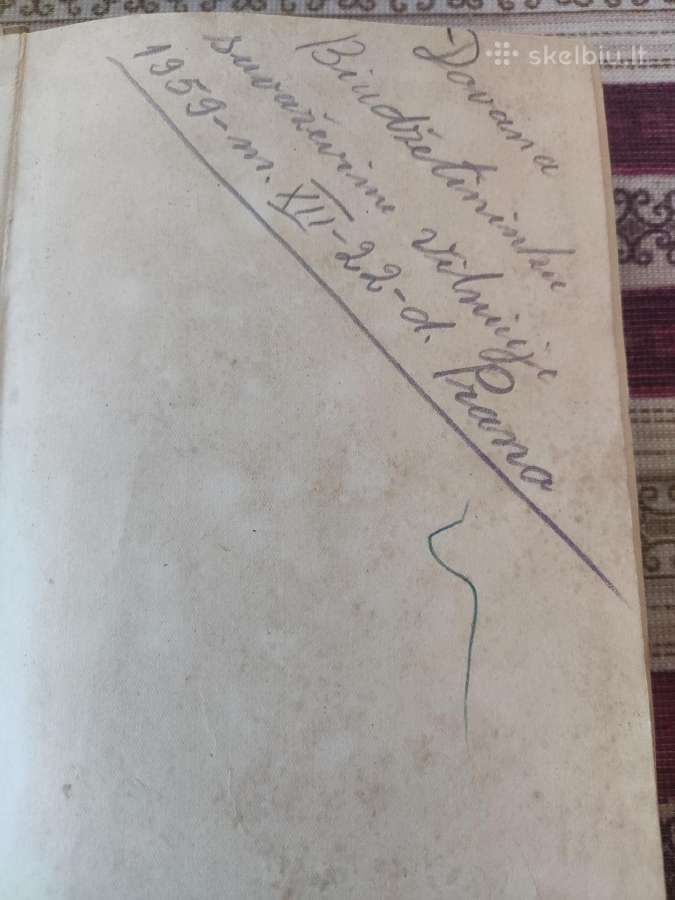 skelbiu.lt
Dovana
Biudžetininkų
suvaževime Vilniuje
1959-m. XII-22-d. Prano